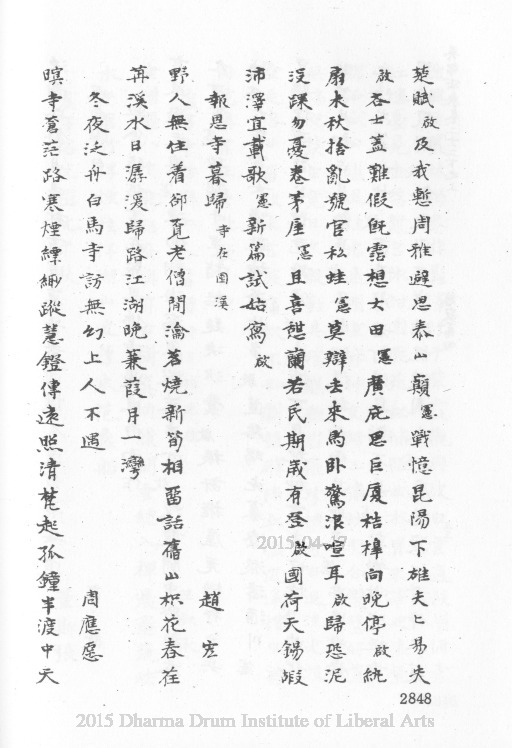 楚賦啟及我慙周雅避思泰山顛憲戰憶昆陽下雄夫亡易失
啟名士蓋難假既霑想大田憲廣庇思巨厦桔槹向晚停啟紈
扇未秋捨亂號官私蛙憲莫辯去來馬卧驚浪喧耳啟歸恐泥
沒踝勿憂卷茅屋憲且喜憩蘭若民期歲有登啟國荷天錫嘏
沛澤宜載歌憲新篇試始寫啟
報恩寺暮歸寺在園溪 趙宏
野人無住着郤覓老僧閒瀹茗燒新筍相畱話舊山枳花春荏
苒溪水日潺湲歸路江湖晚蒹葭月一灣
冬夜泛舟白馬寺訪無幻上人不遇 周應愿
暝寺蒼茫路寒煙縹緲蹤慧鐙傳遠照清梵起孤鐘半渡中天
2848
2015-04-17
2015 Dharma Drum Institute of Liberal Arts